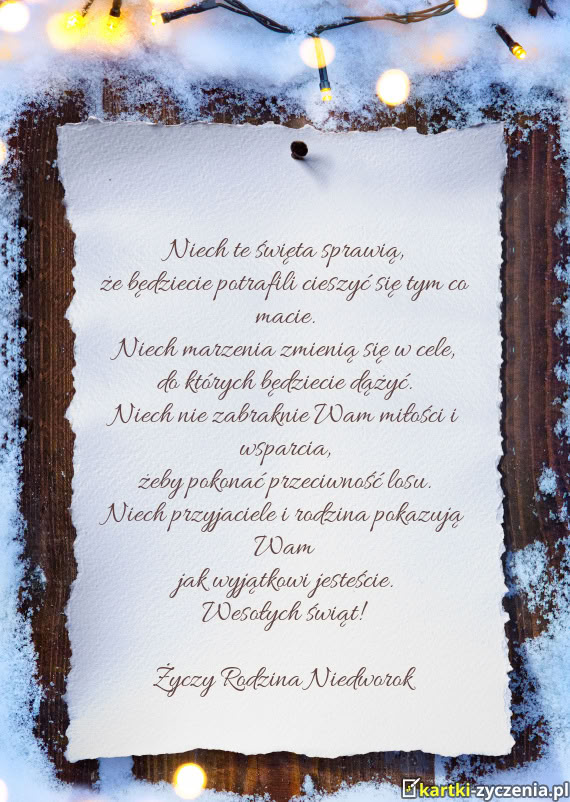 Niech te święta sprawią,
że będziecie potrafili cieszyć się tym co
macie.
Niech marzenia zmienią się w cele,
do których będziecie dążyć.
Niech nie zabraknie Wam miłości i
wsparcia,
żeby pokonać przeciwność losu.
Niech przyjaciele i rodzina pokazują
Wam
jak wyjątkowi jesteście.
Wesołych świąt!
Życzy Rodzina Niedworok
kartki-zyczenia.pl